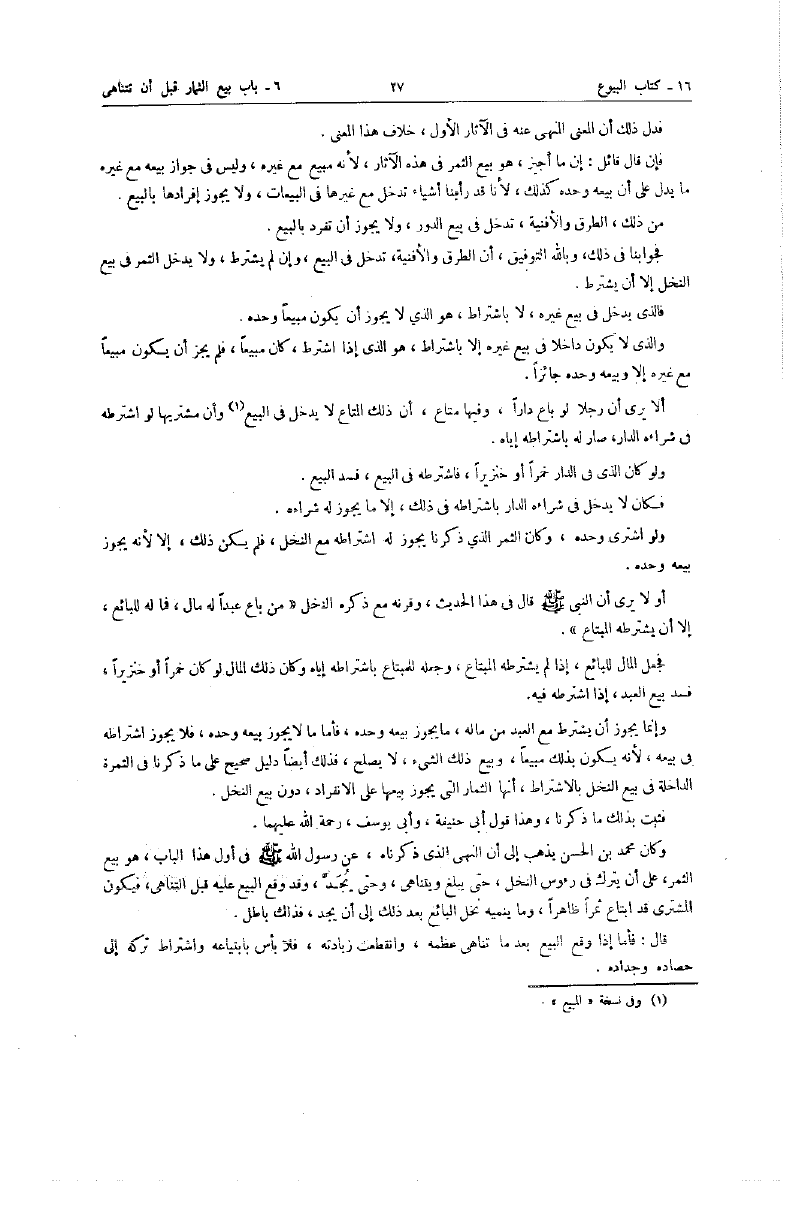 ١٦ - كتاب البيوع ٢٧ ٦ - باب بيع الثمار قبل أن تتناهى
فدل ذلك أن المعنى المنهى عنه فى الآثار الأول ، خلاف هذا المعنى .
فإن قال قائل : إن ما أجيز ، هو بيع الثمر فى هذه الآثار ، لأنه مبيع مع غيره ، وليس فى جواز بيعه مع غيره
ما يدل على أن بيعه وحده كذلك ، لأنا قد رأينا أشياء تدخل مع غيرها فى البيعات ، ولا يجوز إفرادها بالبيع .
من ذلك ، الطرق والأفنية ، تدخل فى بيع الدور ، ولا يجوز أن تفرد بالبيع .
فجوابنا فى ذلك، وبالله التوفيق ، أن الطرق والأفنية، تدخل فى البيع ، وإن لم يشترط ، ولا يدخل الثمر فى بيع
النخل إلا أن يشترط .
فالذى يدخل فى بيع غيره ، لا باشتراط ، هو الذي لا يجوز أن يكون مبيعاً وحده .
والذى لا يكون داخلا فى بيع غيره إلا باشتراط ، هو الذى إذا اشترط ، كان مبيعاً ، فلم يجز أن يكون مبيعاً
مع غيره إلا وبيعه وحده جائزاً .
ألا يرى أن رجلا لو باع داراً ، وفيها متاع ، أن ذلك المتاع لا يدخل فى البيع(١) وأن مشتريها لو اشترطه
فى شراءه الدار، صار له باشتراطه إياه .
ولو كان الذى فى الدار خمراً أو خنزيراً ، فاشترطه فى البيع ، فسد البيع .
فكان لا يدخل فى شراءه الدار باشتراطه فى ذلك ، إلا ما يجوز له شراءه .
ولو اشترى وحده ، وكان الثمر الذي ذكرنا يجوز له اشتراطه مع النخل ، فلم يكن ذلك ، إلا لأنه يجوز
بيعه وحده .
أو لا يرى أن النبى ﷺ قال فى هذا الحديث ، وقرنه مع ذكره النخل « من باع عبداً له مال ، فما له للبائع ،
إلا أن يشترطه المبتاع » .
فجعل المال للبائع ، إذا لم يشترطه المبتاع ، وجعله للمبتاع باشتراطه إياه وكان ذلك المال لو كان خمراً أو خنزيراً ،
فسد بيع العبد ، إذا اشترطه فيه.
وإنما يجوز أن يشترط مع العبد من ماله ، مايجوز بيعه وحده ، فأما ما لايجوز بيعه وحده ، فلا يجوز اشتراطه
فى بيعه ، لأنه يكون بذلك مبيعاً ، وبيع ذلك الشىء ، لا يصلح ، فذلك أيضاً دليل صحيح على ما ذكرنا فى الثمرة
الداخلة فى بيع النخل بالاشتراط ، أنها الثمار التى يجوز بيعها على الانفراد ، دون بيع النخل .
فثبت بذلك ما ذكرنا ، وهذا قول أبى حنيفة ، وأبى يوسف ، رحمة الله عليهما .
وكان محمد بن الحسن يذهب إلى أن النهى الذى ذكرناه ، عن رسول الله ﷺ فى أول هذا الباب ، هو بيع
الثمر، على أن يترك فى رءوس النخل ، حتى يبلغ ويتناهى ، وحتى يُجَدَّ ، وقد وقع البيع عليه قبل التناهى، فيكون
المشترى قد ابتاع ثمراً ظاهراً ، وما ينميه نخل البائع بعد ذلك إلى أن يجد ، فذلك باطل .
قال : فأما إذا وقع البيع بعد ما تناهى عظمه ، وانقطعت زيادته ، فلا بأس بابتياعه واشتراط تركه إلى
حصاده وجداده .
(١) وفى نسخة « المبيع » .